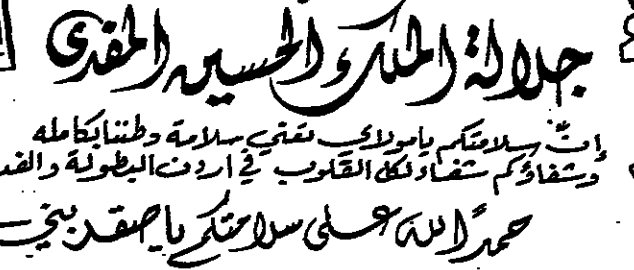 جلالة الملك الحسين المفدى
إنّ سلامتكم يامولاي تعني سلامة وطننا بكامله
وشفاؤكم شفاء لكل القلوب في اردن البطولة والفد
حمدًا لله على سلامتكم ياصقر بني